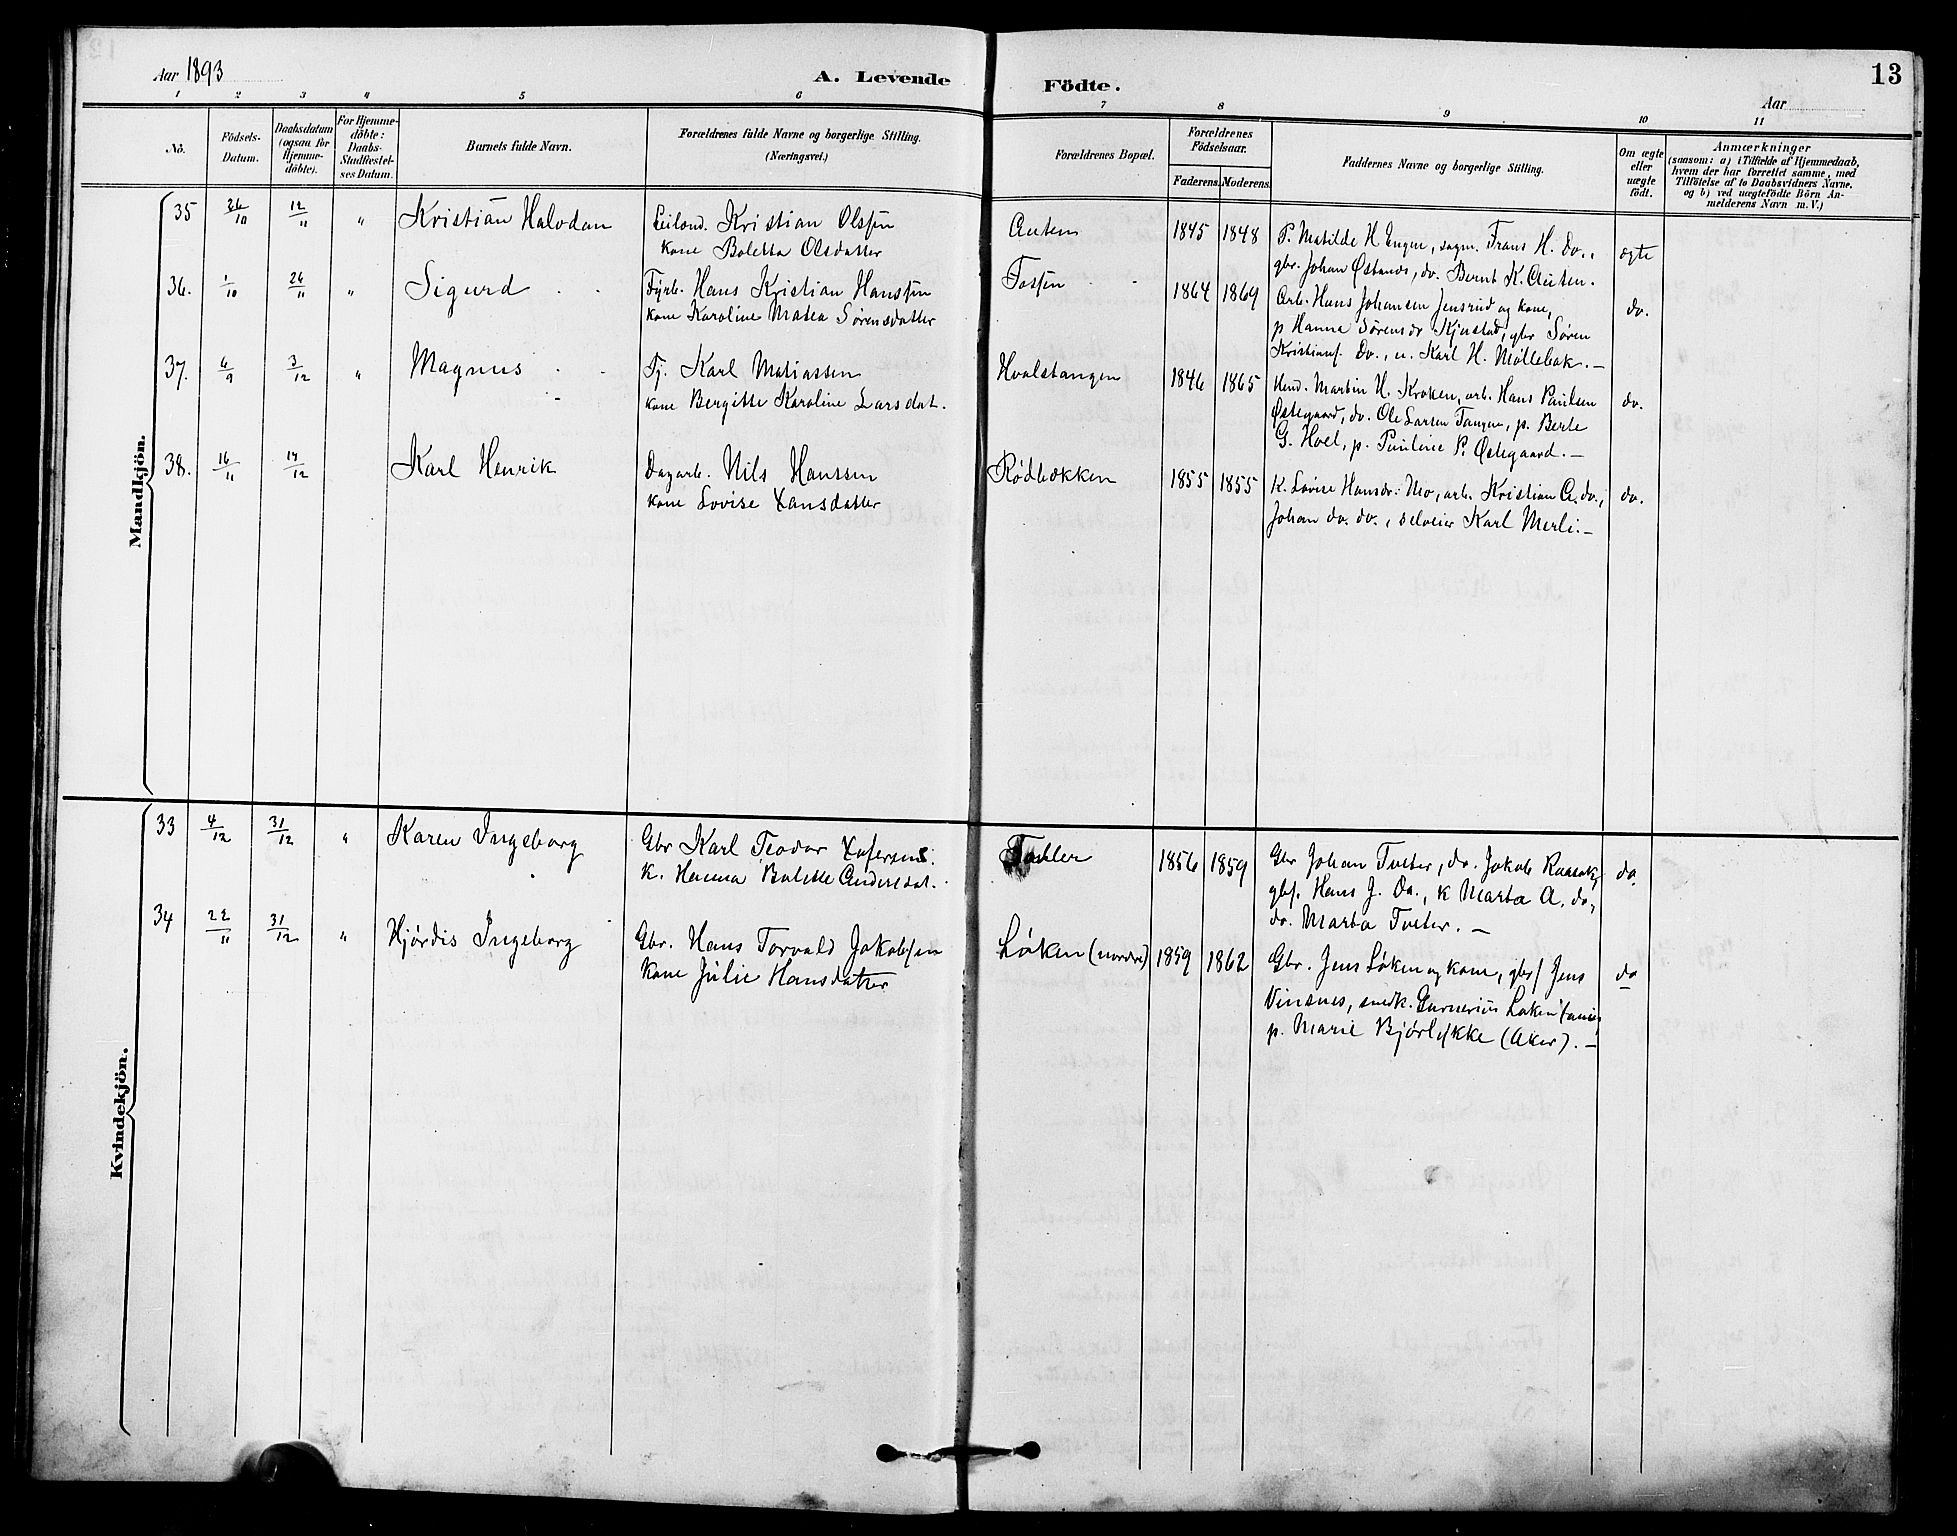 Aar 1893
A. Levende
Födte.
13
Aar
1 2 3 4 5 6 7 8 9 10 11
Nô.
Födsels-
Datum.
Daabsdatum
(ogsaa for
Hjemme-
döbte).
For Hjemme-
döbte:
Daabs-
Stadfæstel-
ses Datum.
Barnets fulde Navn.
Forældrenes fulde Navne og borgerlige Stilling.
(Næringsvei.)
Forældrenes Bopæl.
Forældrenes
Födselsaar.
Faderens. Moderens.
Faddernes Navne og borgerlige Stilling.
Om ægte
eller
uægte
födt.
Anmærkninger
(saasom: a) i Tilfælde af Hjemmedaab,
hvem der har forrettet samme, med
Tilföielse af to Daabsvidners Navne.
og b) ved uægtefödte Börn An-
melderens Navn m. V.)
Mandkjön.
35 26/10 12/11 " Kristian Halvdan
Leilænd. Kristian Olsen
kone Boletta Olsdatter
Auten
1845 1848
P. Matilde H. Engen, sagm. Frans H. do.,
gbr. Johan Østands, do. Bernt K. Auten.
ægte
36. 1/10 26/11 " Sigurd
Fyrb. Hans Kristian Hanssen
kone Karoline Matea Sørensdatter
Fossen
1864 1869
Arb. Hans Johansen Jensrud og kone,
p. Hanna Sørensdr Kjustad, gbr Søren
Kristians. do., u. Karl H. Møllebak. —
do.
37. 6/9 3/12 " Magnus
Tj. Karl Matiassen
kone Bergitte Karoline Larsdat.
Hvalstangen
1846 1865
Hend. Martin H. Kroken, arb. Hans Paulsen
Østegaard, do. Ole Larsen Tangen, p. Berte
G. Hvel, p. Pauline P. Østegaard. —
do.
38. 16/11 17/12 Karl Henrik
Dagarb. Nils Hanssen
kone Lovise Hansdatter
Rødbækken
1855 1855
K. Lovise Hansdr. Mo, arb. Kristian A. do.,
Johan do. do., selveier Karl Merli. —
do.
Kvindekjön.
33 4/12 31/12 " Karen Ingeborg
Gbr Karl Teodor
K. Hanna Bolette Andersdat.
1856 1859
Gbr Johan Tveter, do. Jakob
gbs. Hans J. do., k Marta A. do,
do. Marta Tveter. —
do.
34 22/11 31/12 " Hjórdis Ingeborg
Gbr. Hans Torvald Jakobsen
Kone Julie Hansdatter
Løken (nordre)
1859 1862
Gbr. Jens Løken og kone, gbs/ Jens
Vinsnes, smedk. Gunerius Løken
p. Marie Bjørlykke (Aker). —
do